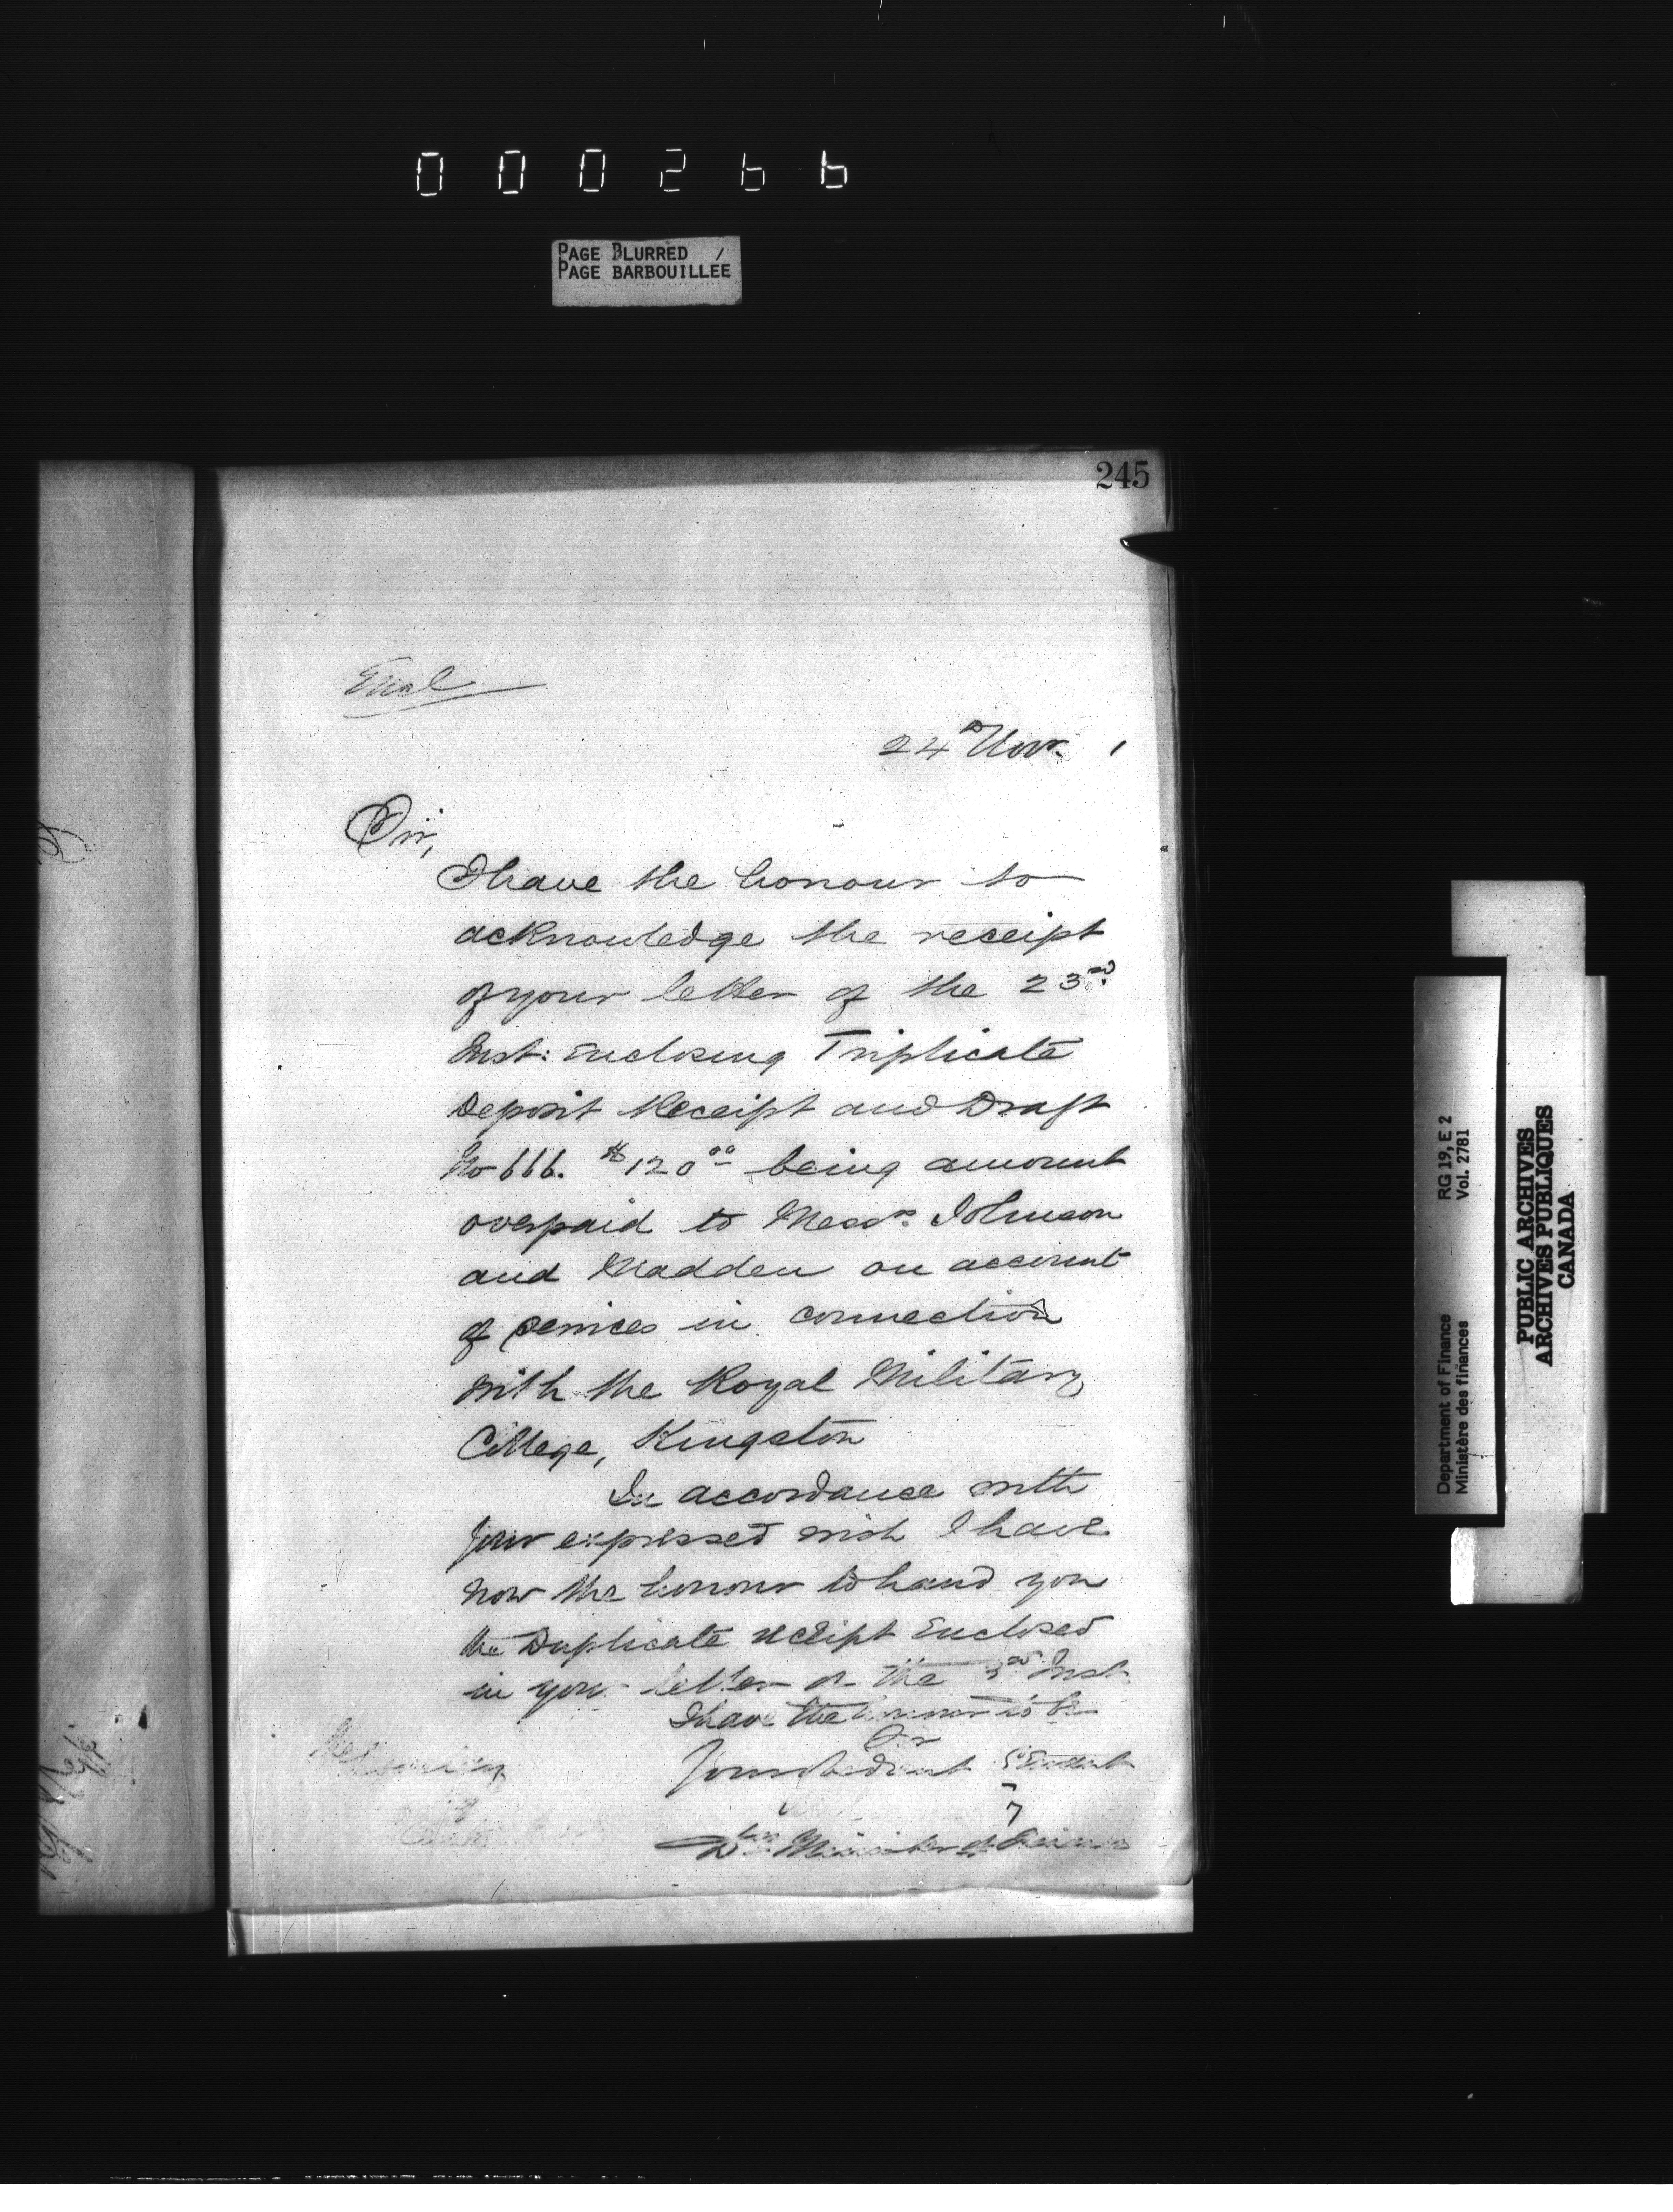 000266
PAGE BLURRED /
PAGE BARBOUILLEE
245
Encl
24th Nov. 1
Sir,
I have the honour to
acknowledge the receipt
of your letter of the 23rd
Inst: Enclosing Triplicate
Deposit Receipt and Draft
No 666. $120 00 being amount
overpaid to Messrs. Johnson
and Madden on account
of services in connection
with the Royal Military
College, Kingston
In accordance with
your expressed wish I have
now the honour to hand you
the Duplicate receipt Enclosed
in your letter of the Inst.
I have the honour to be
Sir
Your obedient Servant
Minister of Finance
RG 19, E 2
Vol. 2781
Department of Finance
Ministère des finances
PUBLIC ARCHIVES
ARCHIVES PUBLIQUES
CANADA